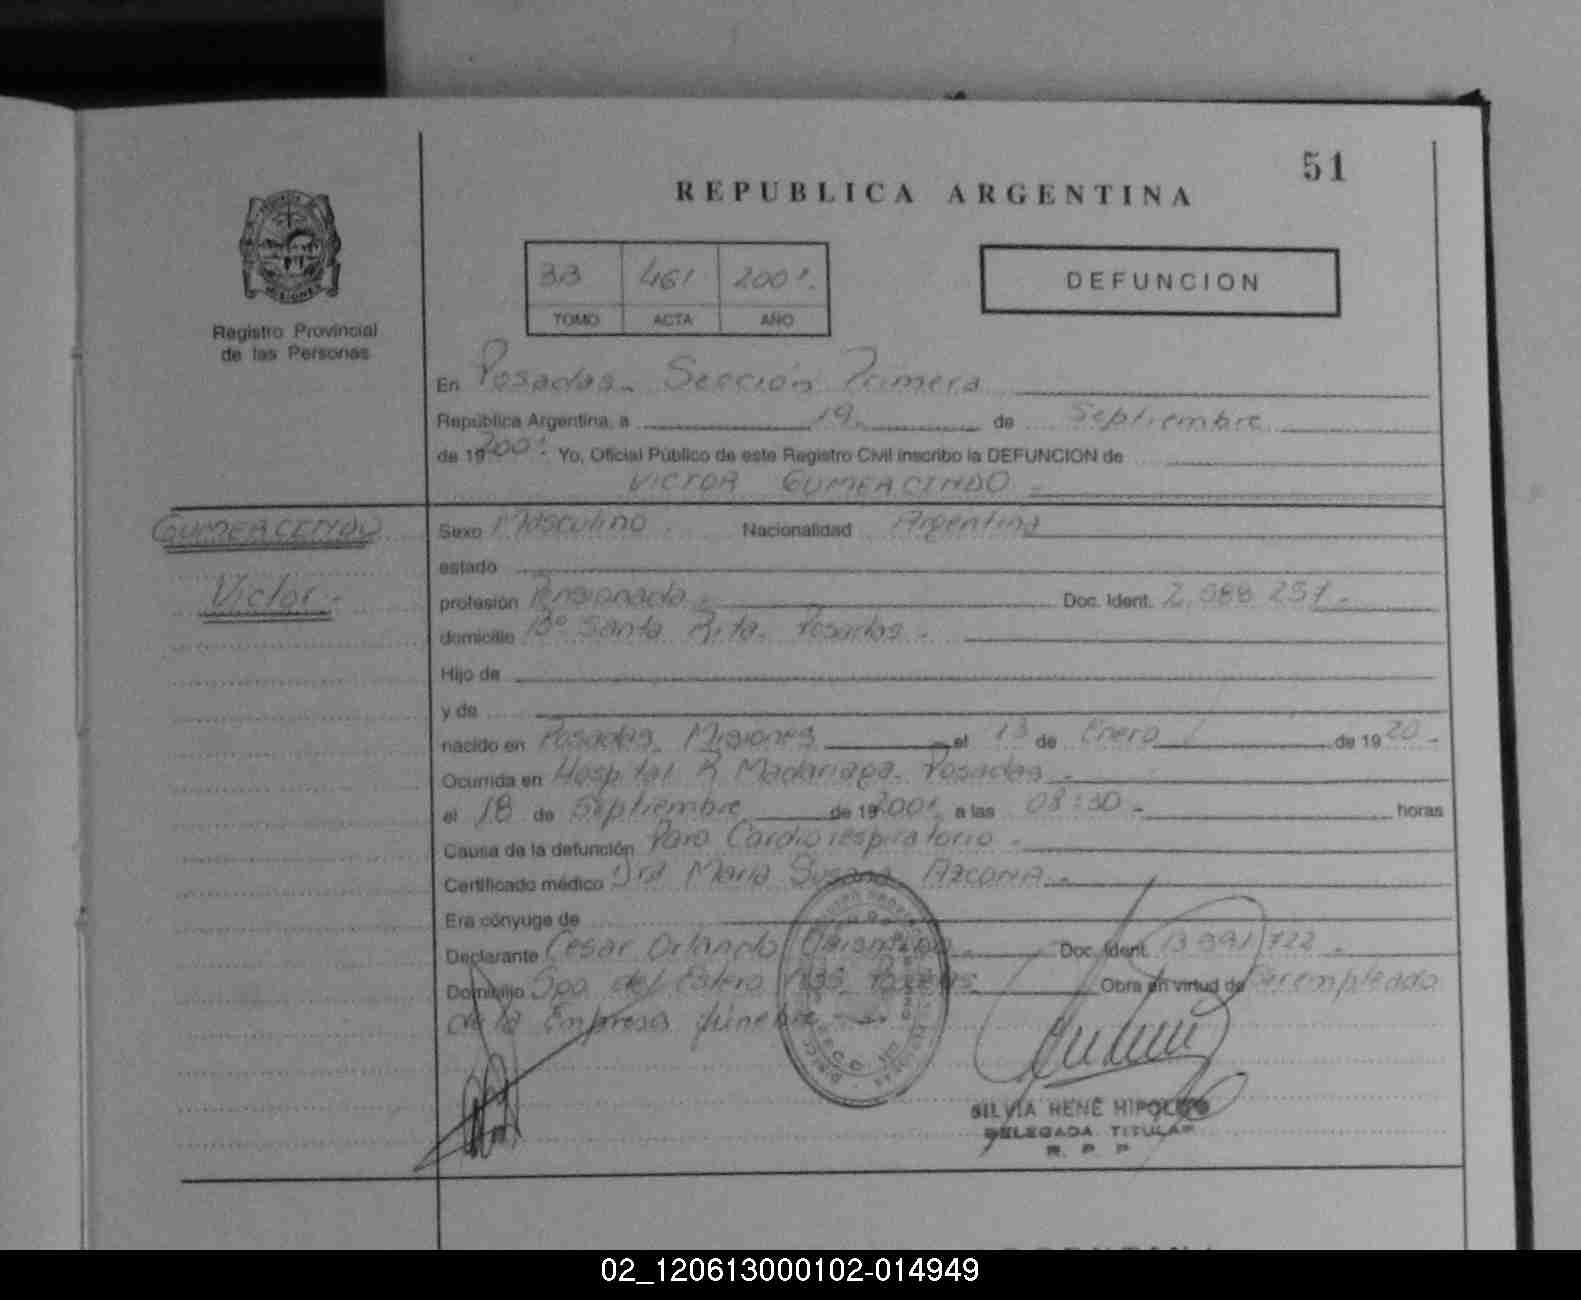 51
REPUBLICA ARGENTINA
MISIONES
Registro Provincial
de las Personas
33 461 2001.
TOMO ACTA AÑO
DEFUNCION
En Posadas. Sección Primera
República Argentina, a 19. de Septiembre
de 192001. Yo, Oficial Público de este Registro Civil inscribo la DEFUNCION de
VICTOR GUMERCINDO
GUMERCINDO
Victor.-
Sexo Masculino. Nacionalidad Argentina
estado
profesión Pensionado.- Doc. Ident. 2.588.257.-
domicilio Bº Santa Rita. Posadas.-
Hijo de
y de
nacido en Posadas. Misiones el 13 de Enero de 1920.-
Ocurrida en Hospital R Madariaga. Posadas.-
el 18 de Septiembre de 192001. a las 08:30.- horas
Causa de la defunción Paro Cardiorespiratorio.-
Certificado médico Dra Maria Susana AZCONA.-
Era cónyuge de
Declarante Cesar Orlando Doc. Ident. 13.591.722.-
Domicilio Sgo del Estero Posadas Obra en virtud de Ser empleado
de la Empresa fúnebre
SILVIA RENÉ HIPOLITO
DELEGADA TITULAR
R. P. P
02_120613000102-014949